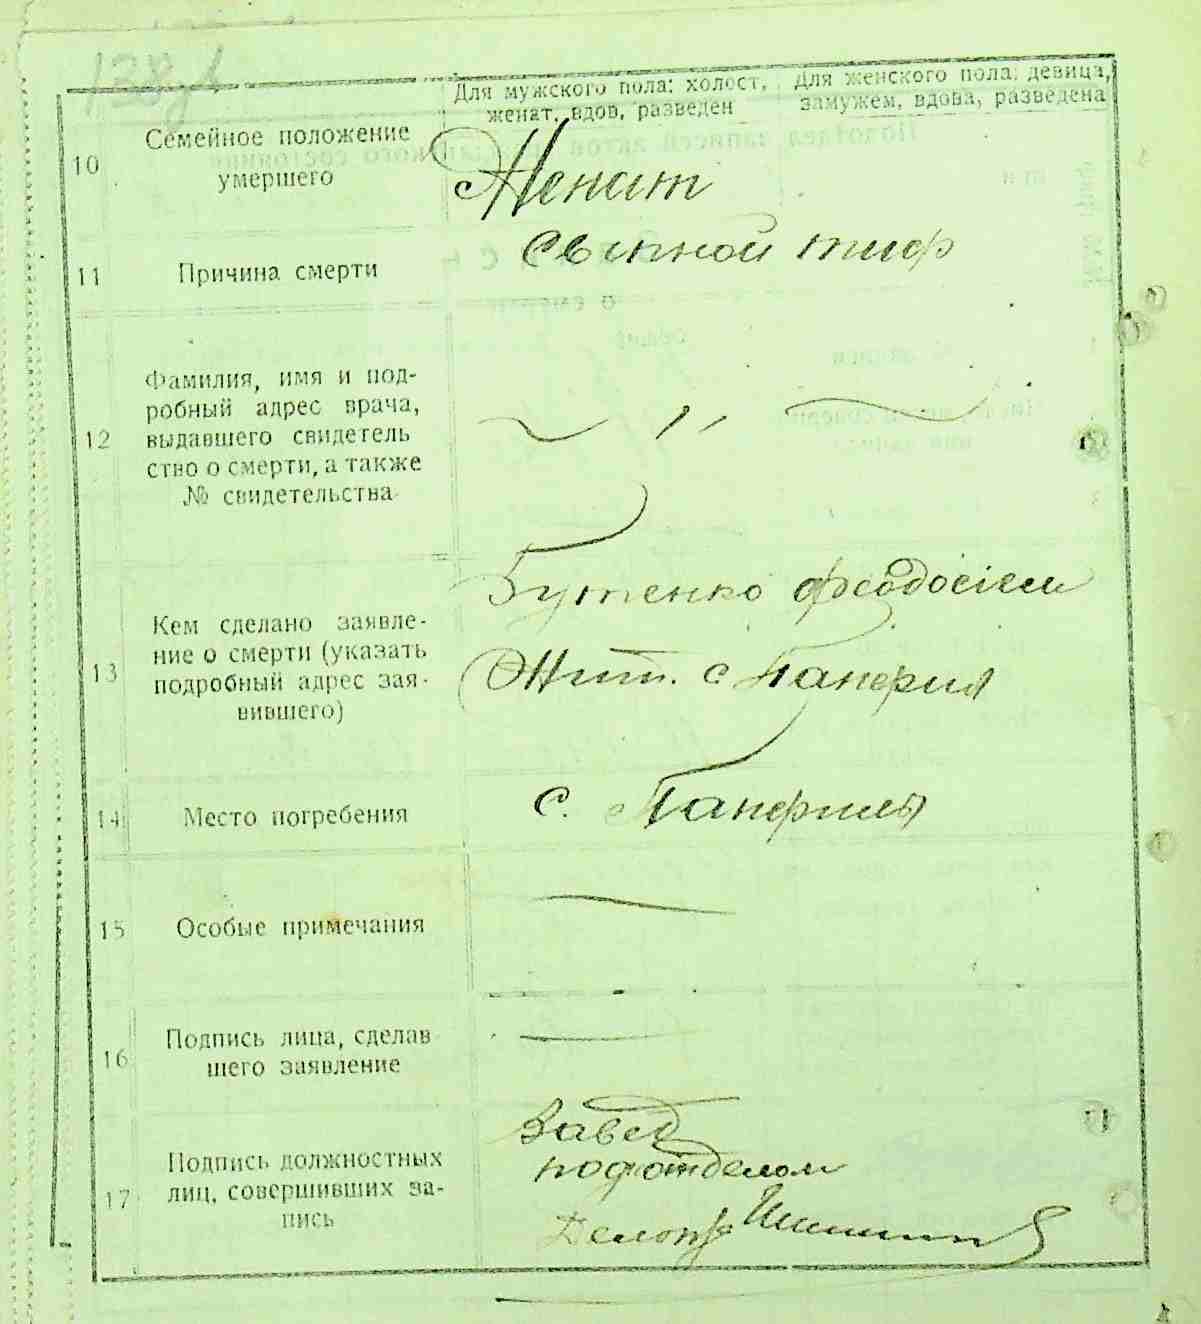 Для мужского пола: холост, женат, вдов, разведен
Для женского пола: девица, замужем, вдова, разведена
10
Семейное положение
умершего
Женат
11
Причина смерти
Сыпной тиф
12
Фамилия, имя и под-
робный адрес врача,
выдавшего свидетель
ство о смерти, а также
№ свидетельства
13
Кем сделано заявле-
ние о смерти (указать
подробный адрес зая-
вившего)
Бутенко Феодосием
Жит. с
14
Место погребения
с.
15
Особые примечания
16
Подпись лица, сделав
шего заявление
17
Подпись должностных
лиц, совершивших за-
пись
Завед
подотделом
Делопр